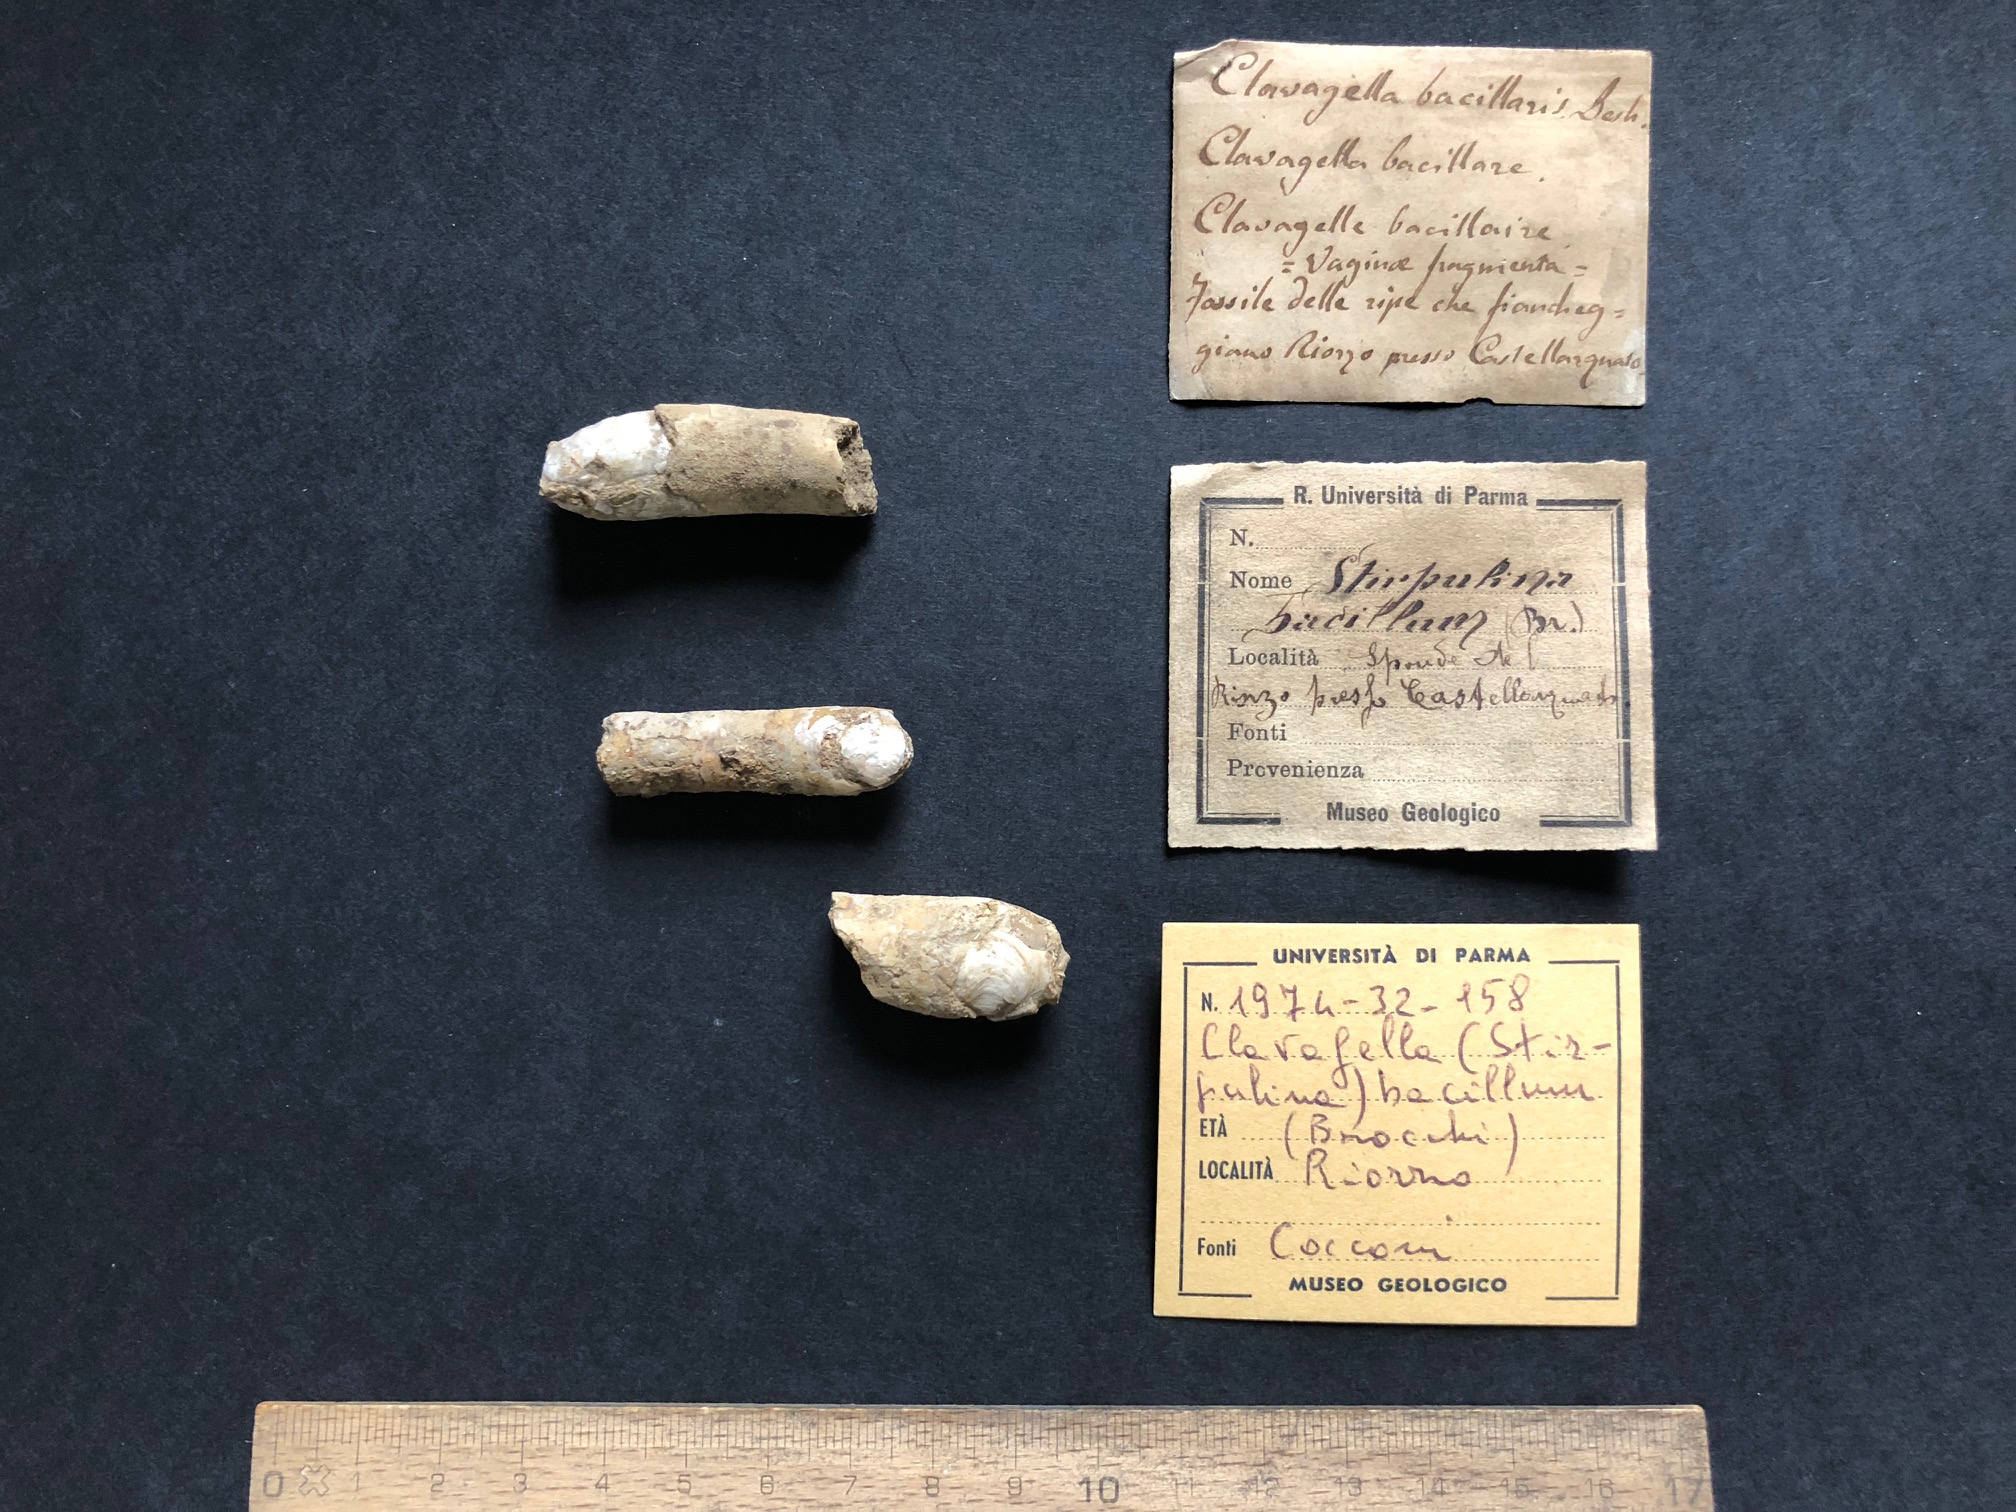 Clavagella bacillaris. Desh.
Clavagella bacillare.
Clavagelle bacillaire
= Vaginæ fragmenta =
Fossile delle ripe che fiancheg=
giano Riorzo presso Castellarquato.
R. Università di Parma
N.
Nome Stirpulina
bacillum (Br.)
Località Sponde del
Riorzo presso Castellarquato.
Fonti
Provenienza
Museo Geologico
UNIVERSITÀ DI PARMA
N. 1974-32-158
Clavagella (Stir-
pulina) bacillum
ETÀ (Brocchi)
LOCALITÀ Riorzo
Fonti Cocconi
MUSEO GEOLOGICO
0 1 2 3 4 5 6 7 8 9 10 11 12 13 14 15 16 17